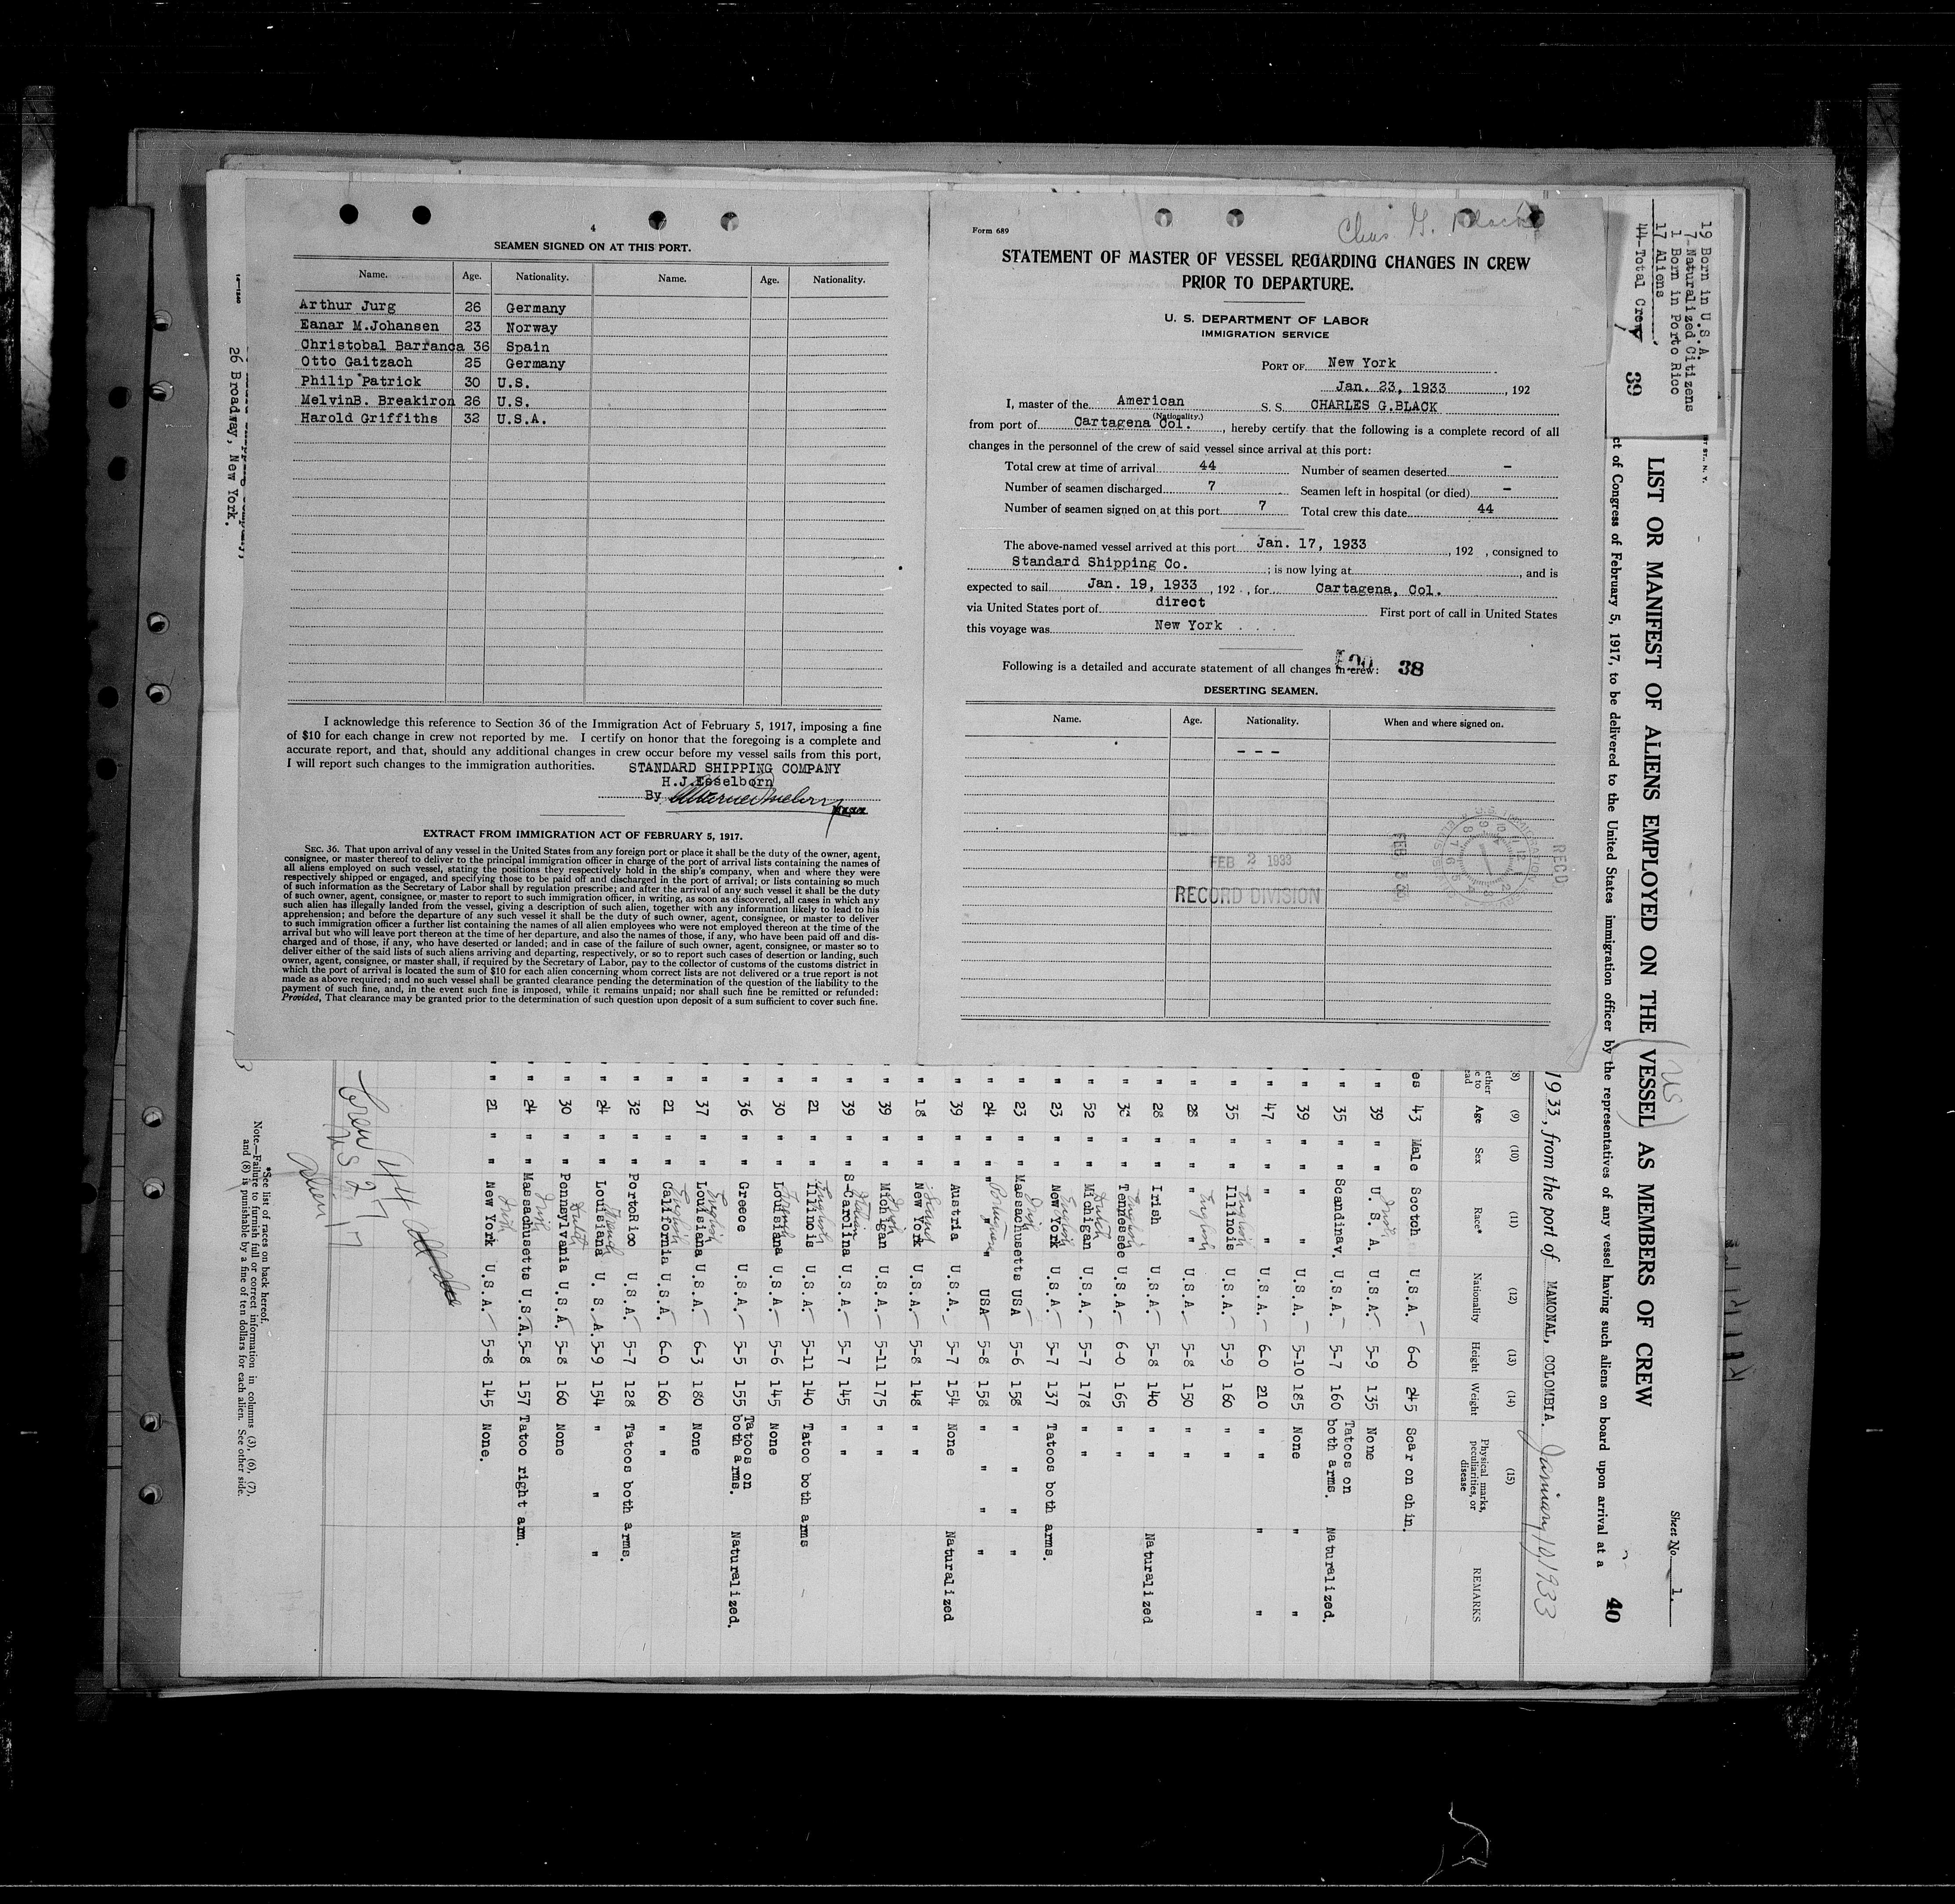 4
SEAMEN SIGNED ON AT THIS PORT.
Name. Age. Nationality. Name. Age. Nationality.
Arthur Jurg 26 Germany
Eanar M.Johansen 23 Norway
Christobal Barranca 36 Spain
Otto Gaitzach 25 Germany
Philip Patrick 30 U.S.
MelvinB. Breakiron 26 U.S.
Harold Griffiths 32 U.S.A.
I acknowledge this reference to Section 36 of the Immigration Act of February 5, 1917, imposing a fine
of $10 for each change in crew not reported by me. I certify on honor that the foregoing is a complete and
accurate report, and that, should any additional changes in crew occur before my vessel sails from this port,
I will report such changes to the immigration authorities.
STANDARD SHIPPING COMPANY
H.J.Esselborn
By
EXTRACT FROM IMMIGRATION ACT OF FEBRUARY 5, 1917.
SEC. 36. That upon arrival of any vessel in the United States from any foreign port or place it shall be the duty of the owner, agent,
consignee, or master thereof to deliver to the principal immigration officer in charge of the port of arrival lists containing the names of
all aliens employed on such vessel, stating the positions they respectively hold in the ship's company, when and where they were
respectively shipped or engaged, and specifying those to be paid off and discharged in the port of arrival; or lists containing so much
of such information as the Secretary of Labor shall by regulation prescribe; and after the arrival of any such vessel it shall be the duty
of such owner, agent, consignee, or master to report to such immigration officer, in writing, as soon as discovered, all cases in which any
such alien has illegally landed from the vessel, giving a description of such alien, together with any information likely to lead to his
apprehension; and before the departure of any such vessel it shall be the duty of such owner, agent, consignee, or master to deliver
to such immigration officer a further list containing the names of all alien employees who were not employed thereon at the time of the
arrival but who will leave port thereon at the time of her departure, and also the names of those, if any, who have been paid off and dis-
charged and of those, if any, who have deserted or landed; and in case of the failure of such owner, agent, consignee, or master so to
deliver either of the said lists of such aliens arriving and departing, respectively, or so to report such cases of desertion or landing, such
owner, agent, consignee, or master shall, if required by the Secretary of Labor, pay to the collector of customs of the customs district in
which the port of arrival is located the sum of $10 for each alien concerning whom correct lists are not delivered or a true report is not
made as above required; and no such vessel shall be granted clearance pending the determination of the question of the liability to the
payment of such fine, and, in the event such fine is imposed, while it remains unpaid; nor shall such fine be remitted or refunded:
Provided, That clearance may be granted prior to the determination of such question upon deposit of a sum sufficient to cover such fine.
Form 689
Chas. G. Black
STATEMENT OF MASTER OF VESSEL REGARDING CHANGES IN CREW
PRIOR TO DEPARTURE.
U. S. DEPARTMENT OF LABOR
IMMIGRATION SERVICE
PORT OF New York
Jan. 23, 1933, 192
I, master of the American S. S. CHARLES G.BLACK
(Nationality.)
from port of Cartagena Col., hereby certify that the following is a complete record of all
changes in the personnel of the crew of said vessel since arrival at this port:
Total crew at time of arrival 44 Number of seamen deserted –
Number of seamen discharged 7 Seamen left in hospital (or died) –
Number of seamen signed on at this port 7 Total crew this date 44
The above-named vessel arrived at this port Jan. 17, 1933, 192 , consigned to
Standard Shipping Co. ; is now lying at , and is
expected to sail Jan. 19, 1933, 192 , for Cartagena, Col.
via United States port of direct First port of call in United States
this voyage was New York
Following is a detailed and accurate statement of all changes in crew: 38
DESERTING SEAMEN.
Name. Age. Nationality. When and where signed on.
- - -
FEB 2 1933
RECORD DIVISION
FEB 3 33
REC'D
19 Born in U.S.A.
7-Naturalized Citizens
1 Born in Porto Rico
17 Aliens
44-Total Crew
39
26 Broadway, New York.
Sheet No. 1.
LIST OR MANIFEST OF ALIENS EMPLOYED ON THE VESSEL AS MEMBERS OF CREW
(US)
40
ct of Congress of February 5, 1917, to be delivered to the United States immigration officer by the representatives of any vessel having such aliens on board upon arrival at a
1933, from the port of MAMONAL, COLOMBIA. January 10, 1933
(8) (9) (10) (11) (12) (13) (14) (15)
Age Sex Race* Nationality Height Weight Physical marks, peculiarities, or disease REMARKS
es 43 Male Scotch U.S.A. 6-0 245 Scar on chin.
" 39 " " U. S. A. Irish U.S.A. 5-9 135 None
" 35 " " Scandinav. U.S.A. 5-7 160 Tatoos on both arms. Naturalized.
" 39 " " " U.S.A. 5-10 185 None " "
" 47 " " " U.S.A. 6-0 210 " " " "
" 35 " " Illinois English U.S.A. 5-9 160 " "
" 28 " " " English U.S.A. 5-8 150 " "
" 28 " " Irish U.S.A. 5-8 140 " " Naturalized
" " " Tennessee English U.S.A. 6-0 165 " "
" 52 " " Michigan Dutch U.S.A. 5-7 178 " "
" 23 " " New York English U.S.A. 5-7 137 Tatoos both arms.
" 23 " " Massachusetts Irish USA 5-6 158 " " "
" 24 " " " " Portuguese USA 5-8 158 " " " "
" 39 " " Austria U.S.A. 5-7 154 None Naturalized
" 18 " " New York U.S.A. 5-8 148 " "
" 39 " " Michigan Irish U.S.A. 5-11 175 " "
" 39 " " S-Carolina U.S.A. 5-7 145 " "
" 21 " " Illinois English U.S.A. 5-11 140 Tatoo both arms
" 30 " " Louisiana French U.S.A. 5-6 145 None
" 36 " " Greece U.S.A. 5-5 155 Tatoos on both arms. Naturalized.
" 37 " " Louisiana English U.S.A. 6-3 180 None
" 21 " " California English U.S.A. 6-0 160 " "
" 32 " " PortoRico U.S.A. 5-7 128 Tatoos both arms.
" 24 " " Louisiana French U. S. A. 5-9 154 " " "
" 30 " " Pennsylvania Dutch U.S.A. 5-8 160 None
" 24 " " Massachusetts Irish U.S.A. 5-8 157 Tatoo right arm.
" 21 " " New York Irish U.S.A. 5-8 145 None.
Crew 44
US 27
Alien 17
*See list of races on back hereof.
Note.—Failure to furnish full or correct information in columns (3), (6), (7),
and (8) is punishable by a fine of ten dollars for each alien. See other side.